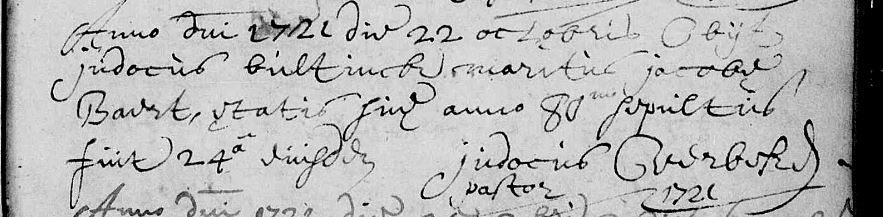 Anno dni 1721 die 22 octobris Obyt
judocus bultinck maritus jacobę
Baert, ętatis suę anno 80mo sepultus
fuit 24a eiusdē judocus Overbeke
pastor 1721
Anno dni 1721 die